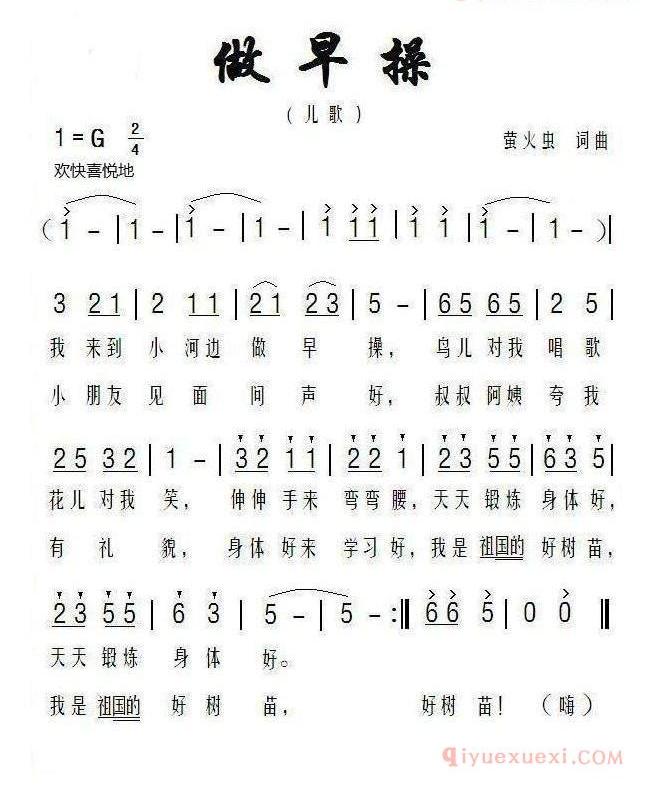 做早操
（儿歌）
1=G 2/4
萤火虫 词曲
欢快喜悦地
（1 - | 1 - | 1 - | 1 - | 1 11 | 1 1 | 1 - | 1 - ）|
3 21 | 2 11 | 21 23 | 5 - | 65 65 | 2 5 |
我 来到 小 河边 做 早 操， 鸟儿 对我 唱歌
小 朋友 见 面 间 声 好， 叔叔 阿姨 夸 我
25 32 | 1 - | 32 11 | 22 1 | 23 55 | 63 5 |
花儿 对我 笑， 伸伸 手来 弯弯 腰，天天 锻炼 身体 好，
有 礼 貌， 身体 好来 学习 好，我是 祖国的 好树 苗，
23 55 | 6 3 | 5 - | 5 - :|| 66 5 | 0 0 ||
天天 锻炼 身 体 好。
我是 祖国的 好 树 苗， 好树 苗！（嗨）
qiyuexuexi.COM